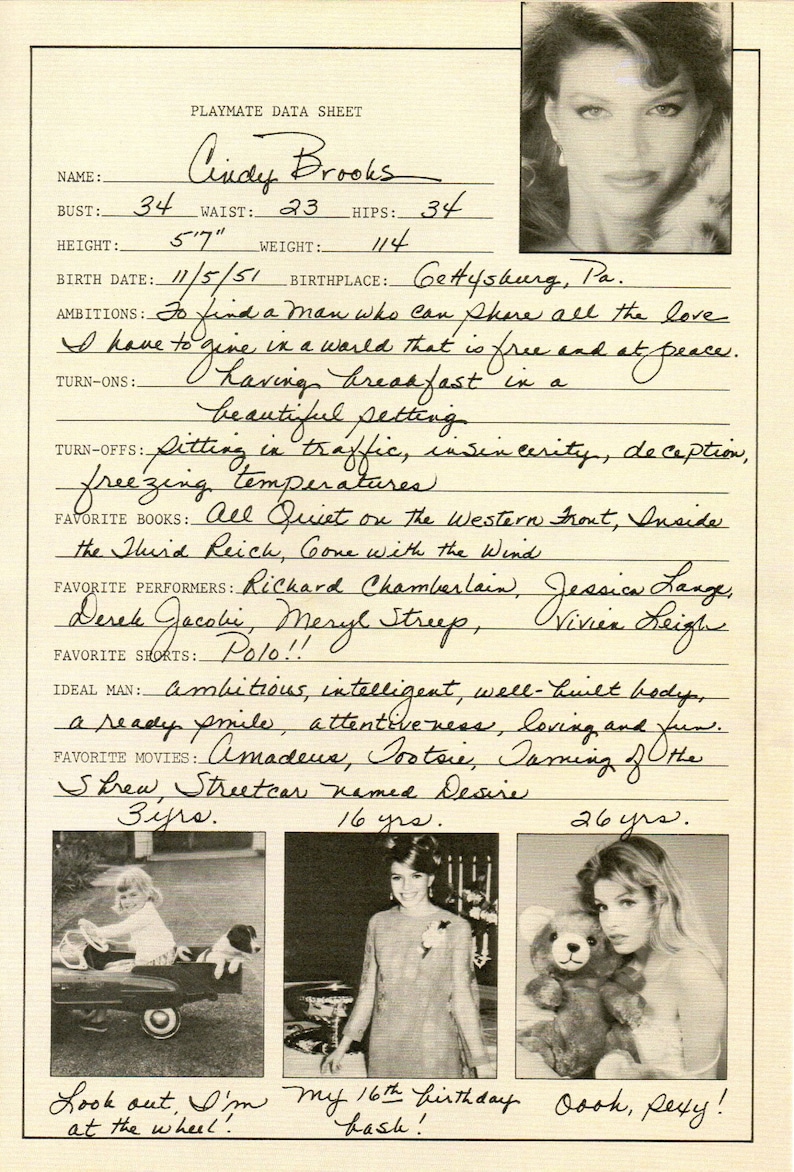 PLAYMATE DATA SHEET
NAME: Cindy Brooks
BUST: 34 WAIST: 23 HIPS: 34
HEIGHT: 5'7" WEIGHT: 114
BIRTH DATE: 11/5/51 BIRTHPLACE: Gettysburg, Pa.
AMBITIONS: To find a man who can share all the love
I have to give in a world that is free and at peace.
TURN-ONS: having breakfast in a
beautiful setting
TURN-OFFS: sitting in traffic, insincerity, deception,
freezing temperatures
FAVORITE BOOKS: All Quiet on the Western Front, Inside
the Third Reich, Gone with the Wind
FAVORITE PERFORMERS: Richard Chamberlain, Jessica Lange,
Derek Jacobi, Meryl Streep, Vivien Leigh
FAVORITE SPORTS: Polo!!
IDEAL MAN: ambitious, intelligent, well-built body,
a ready smile, attentiveness, loving and fun.
FAVORITE MOVIES: Amadeus, Tootsie, Taming of the
Shrew, Streetcar named Desire
3 yrs. 16 yrs. 26 yrs.
Look out, I'm My 16th birthday Oooh, sexy!
at the wheel! bash!